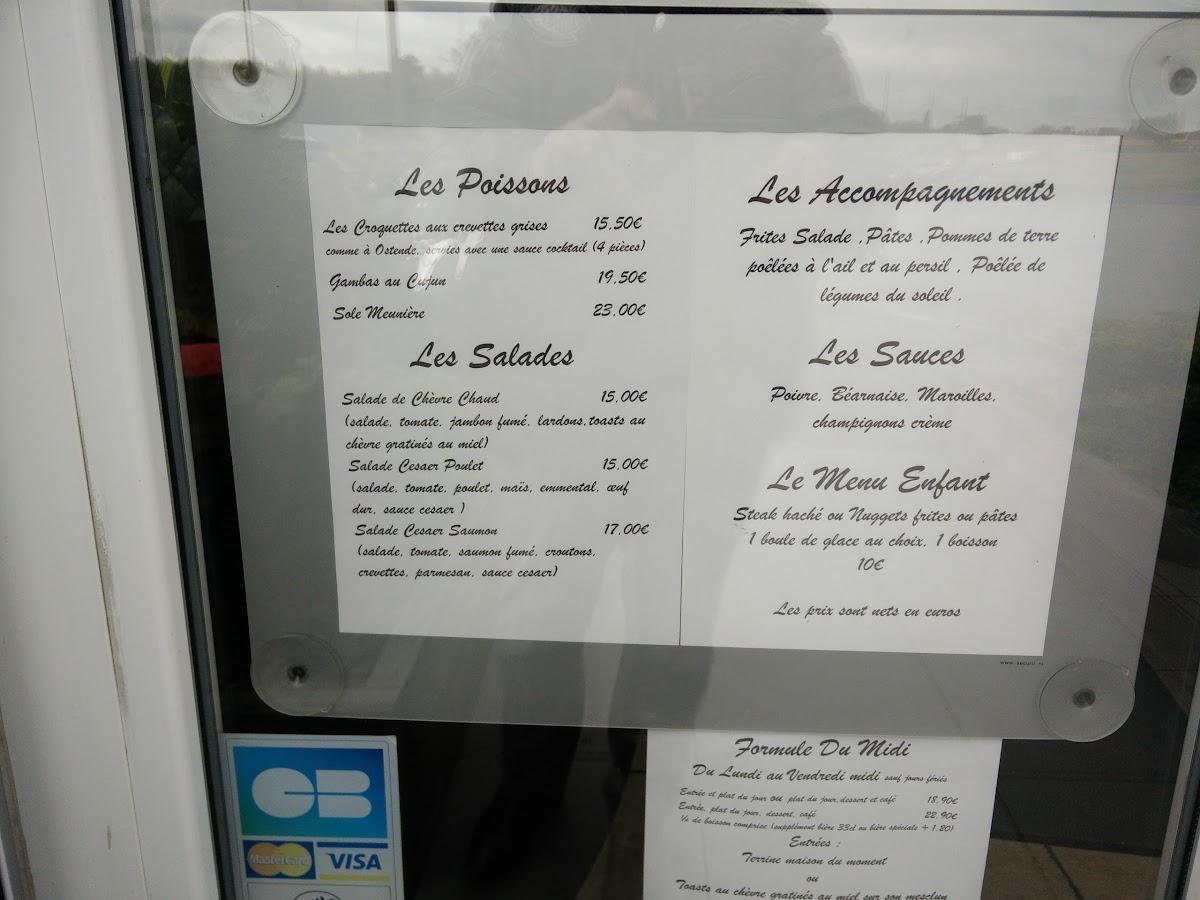 Les Poissons
Les Croquettes aux crevettes grises 15,50€
comme à Ostende, servies avec une sauce cocktail (4 pièces)
Gambas au Cujun 19,50€
Sole Meunière 23,00€
Les Salades
Salade de Chèvre Chaud 15,00€
(salade, tomate, jambon fumé, lardons,toasts au
chèvre gratinés au miel)
Salade Cesaer Poulet 15,00€
(salade, tomate, poulet, maïs, emmental, œuf
dur, sauce cesaer )
Salade Cesaer Saumon 17,00€
(salade, tomate, saumon fumé, croutons,
crevettes, parmesan, sauce cesaer)
Les Accompagnements
Frites Salade ,Pâtes ,Pommes de terre
poêlées à l'ail et au persil , Poêlée de
légumes du soleil .
Les Sauces
Poivre, Béarnaise, Maroilles,
champignons crème
Le Menu Enfant
Steak haché ou Nuggets frites ou pâtes
1 boule de glace au choix, 1 boisson
10€
Les prix sont nets en euros
Formule Du Midi
Du Lundi au Vendredi midi sauf jours fériés
Entrée et plat du jour ou plat du jour, dessert et café 18,90€
Entrée, plat du jour, dessert, café 22,90€
¼ de boisson comprise (supplément bière 33cl ou bière spéciale + 1,20)
Entrées :
Terrine maison du moment
ou
Toasts au chèvre gratinés au miel sur son mesclun
CB
MasterCard VISA